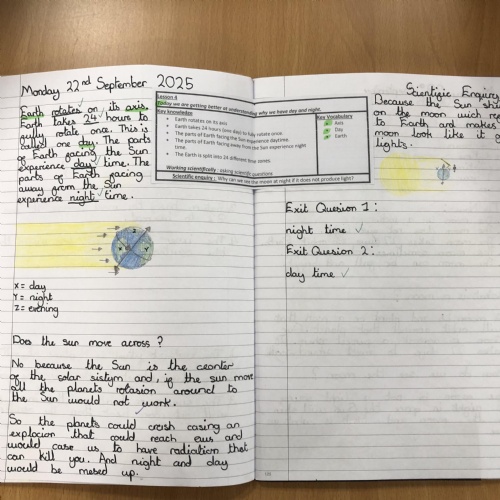 Monday 22nd September 2025
Earth rotates on its axis.
Earth takes 24 hours to
fully rotate once. This is
called one day. The parts
of Earth facing the Sun
experience day time. The
parts of Earth facing
away from the Sun
experience night time.
X = day
Y = night
Z = evening
Does the sun move across?
No because the Sun is the ceonter
of the solar sistym and, if the sun move
all the planets rotasion around to
the Sun would not work.
So the planets could crush casing an
explocion that could reach euws and
would case us to have radiation that
can kill you. And night and day
would be messed up.
Lesson 4
Today we are getting better at understanding why we have day and night.
Key knowledge
Earth rotates on its axis
Earth takes 24 hours (one day) to fully rotate once.
The parts of Earth facing the Sun experience daytime.
The parts of Earth facing away from the Sun experience night
time.
The Earth is split into 24 different time zones
Key Vocabulary
Axis
Day
Earth
Working scientifically: asking scientific questions
Scientific enquiry: Why can we see the moon at night if it does not produce light?
Scientific Enquiry
Because the Sun shi
on the moon wich re
to Earth and makes
moon look like it g
lights.
Exit Quesion 1:
night time
Exit Quesion 2:
day time